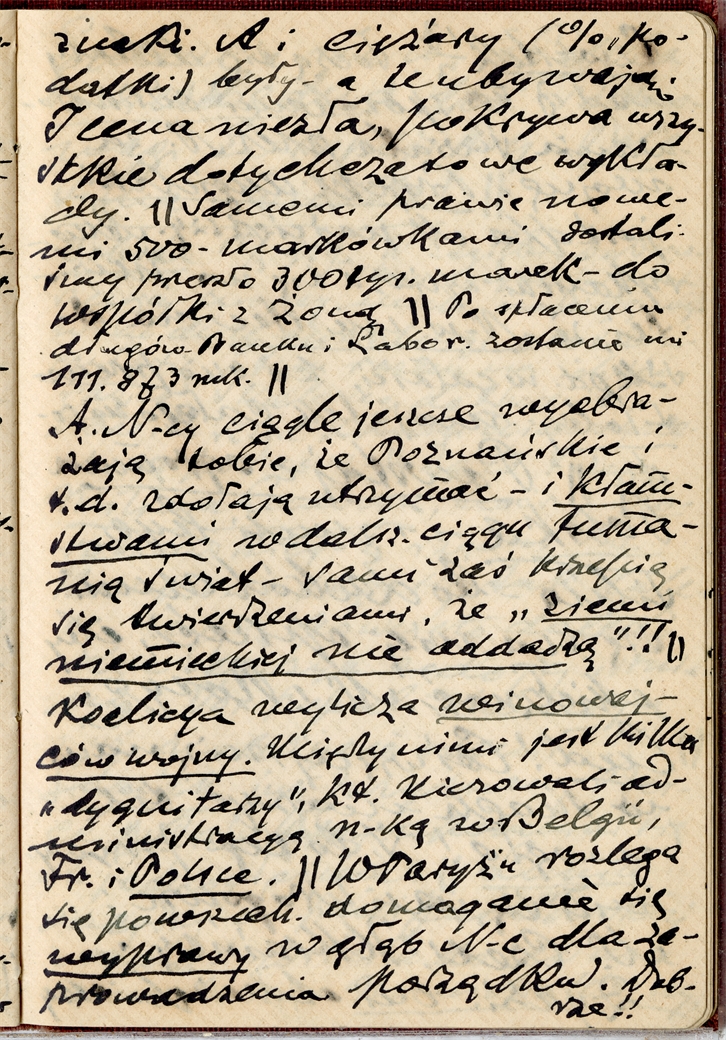 znaki. A i ciężary (%, po-
datki) były - a
I cena niezła, pokrywa wszy-
stkie dotychczasowe wykła-
dy. || Samemi prawie nowe-
mi 500-markówkami dostali-
śmy przeszło 300 tys. marek - do
współki z Żoną || Po spłaceniu
długów Banku i Labor. zostanie mi
111.873 mk. ||
A. N-cy ciągle jeszcze wyobra-
żają sobie, że Poznańskie i
t.d. zdołają utrzymać - i kłam-
stwami w dalsz. ciągu tuma-
nią świat - sami zaś krzepią
się twierdzeniami, że „ziemi
niemieckiej nie oddadzą"!!! ||
Koalicya wylicza winowaj-
ców wojny. Między nimi jest kilku
„dygnitarzy", kt. kierowali ad-
ministracyą n-ką w Belgii,
Fr. i Polsce. || W Paryżu rozlega
się powszech. domaganie się
wyprawy w głąb N-c dla za-
prowadzenia porządku. Dob-
rze!!